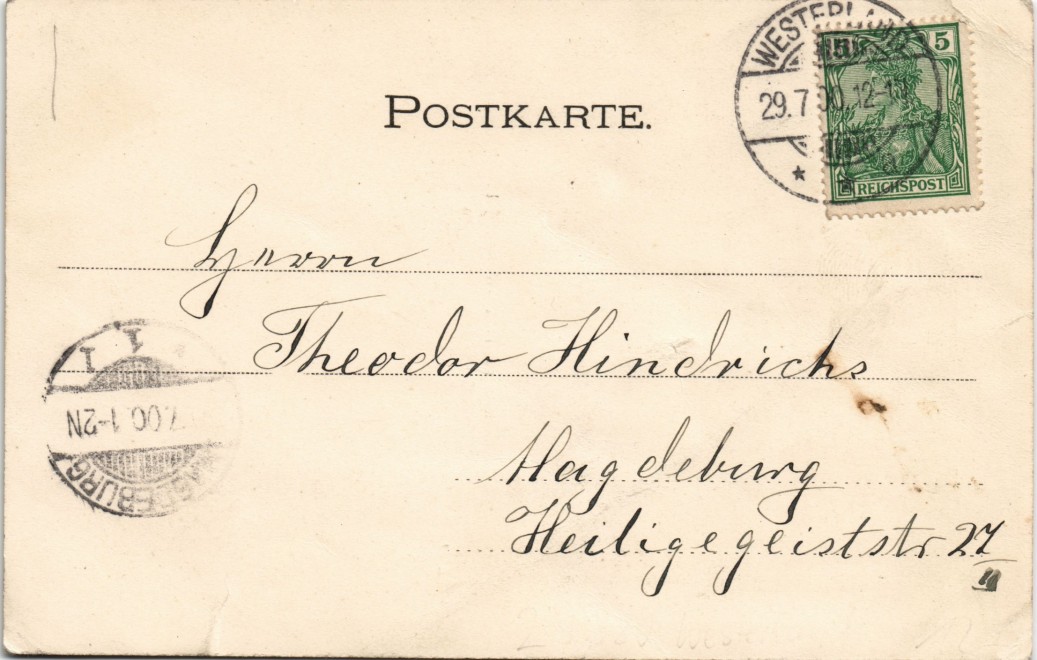 POSTKARTE.
WESTERLAND
29.7.00.12-1N
5
REICHSPOST
Herrn
Theodor Hindrichs
Magdeburg
Heiligegeiststr 27
II
MAGDEBURG
7.00.1-2N
1 1